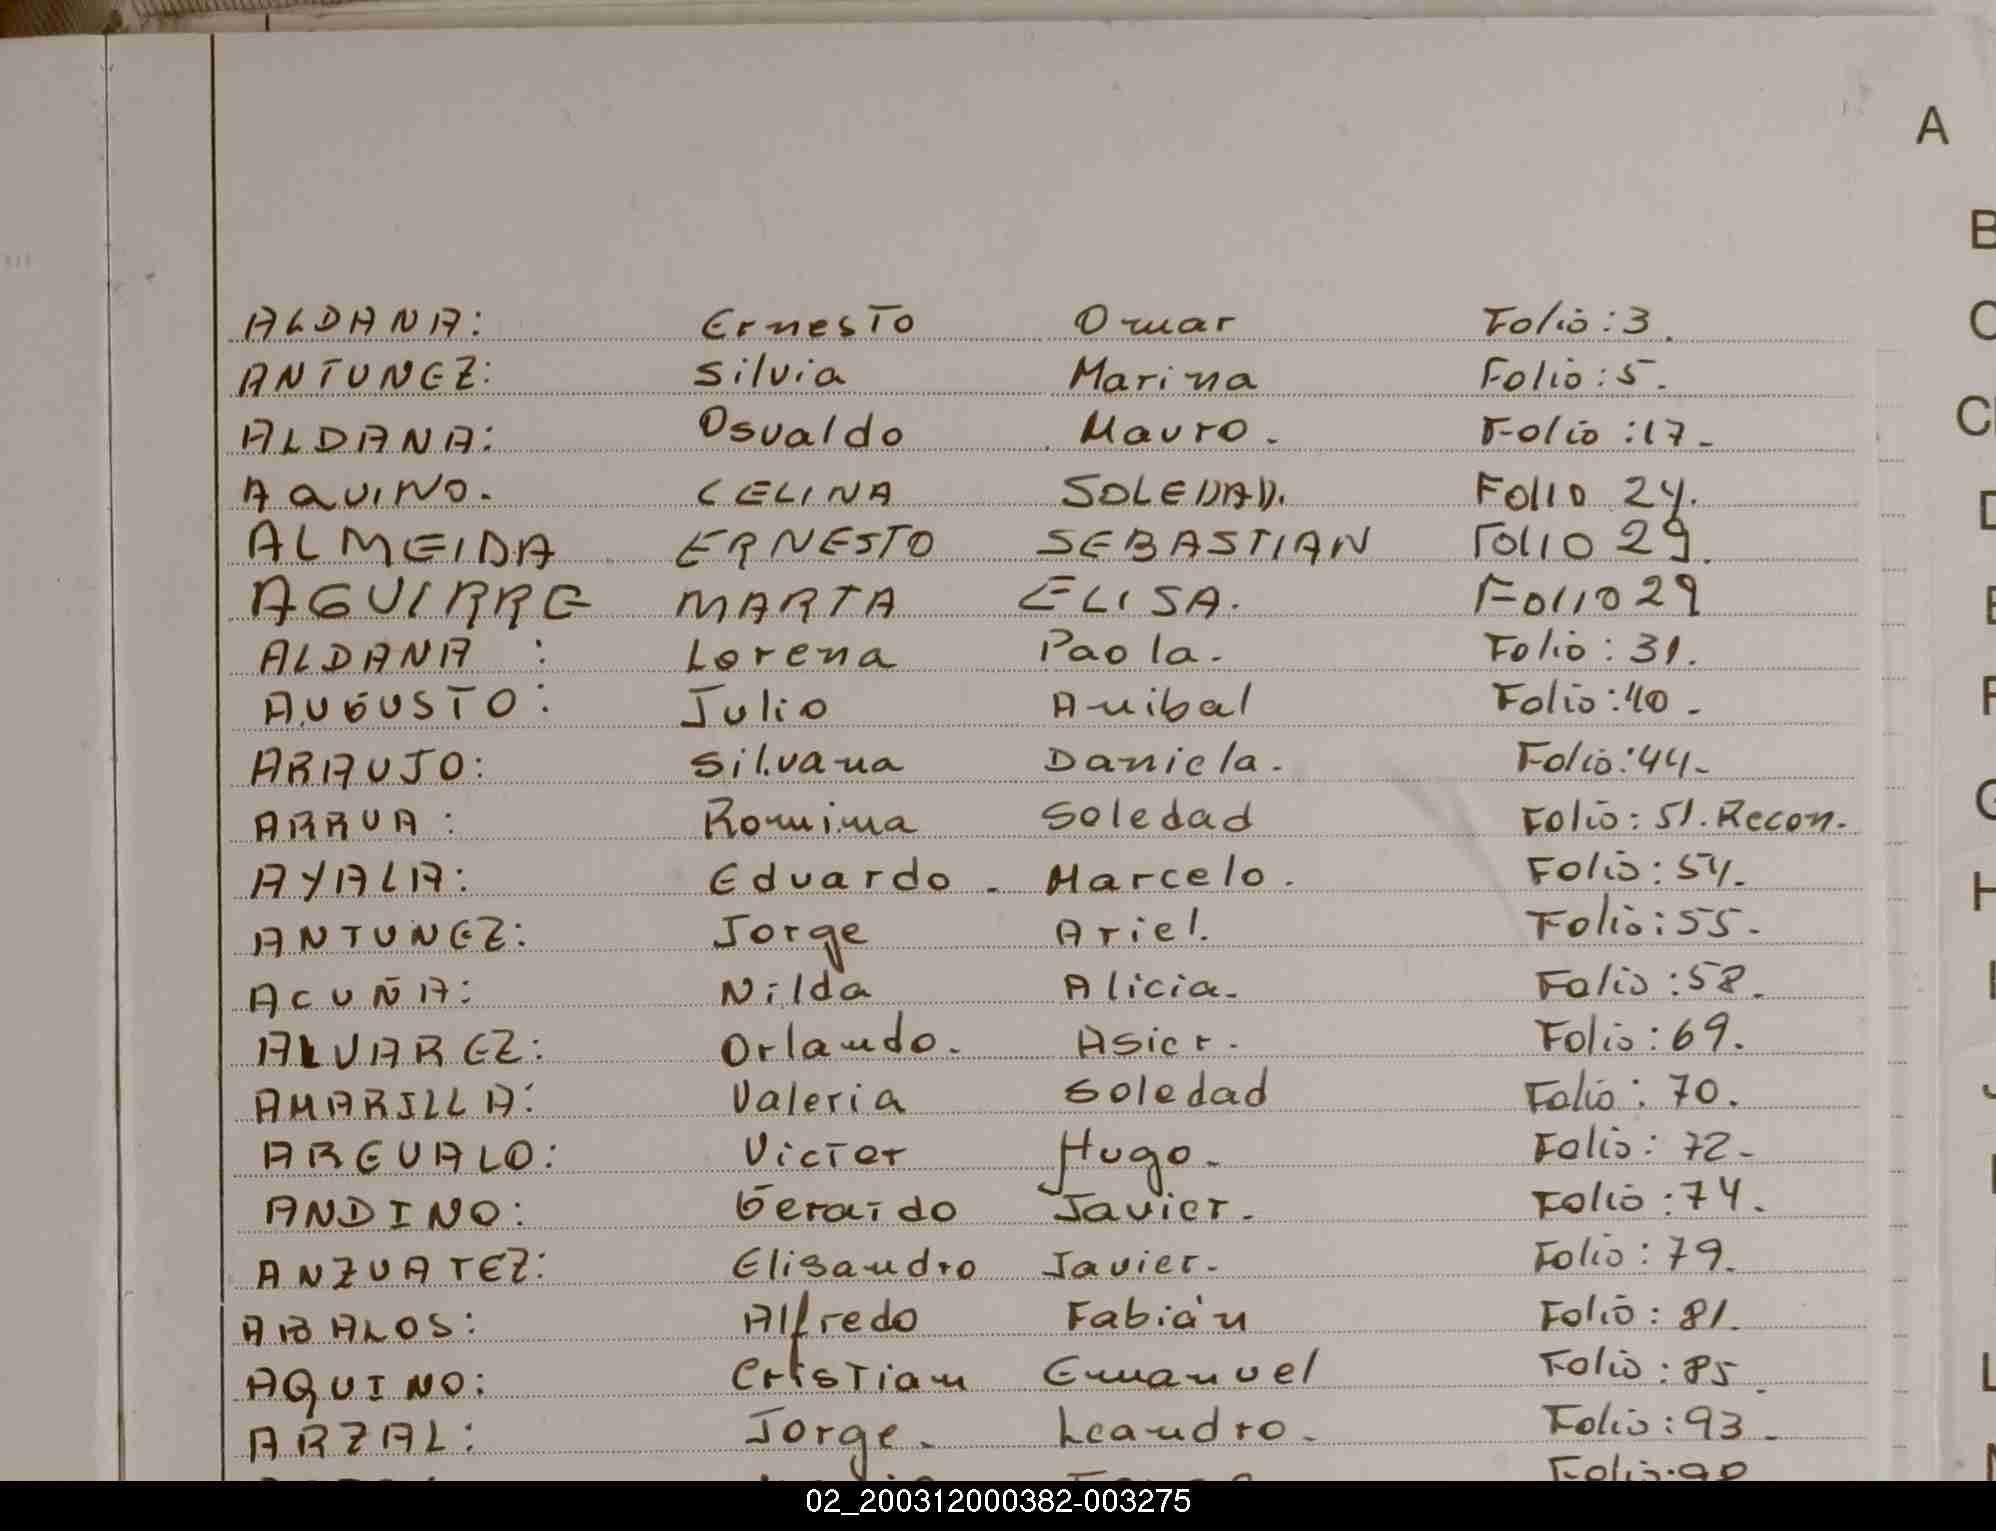 A
B
C
ALDANA: Ernesto Omar Folio: 3.
ANTUNEZ: Silvia Marina Folio: 5.
ALDANA: Osvaldo Mauro. Folio: 17-
AQUINO. CELINA SOLEDAD. FOLIO 24.
ALMEIDA ERNESTO SEBASTIAN FOLIO 29.
AGUIRRE MARTA ELISA. FOLIO 29
ALDANA: Lorena Paola. Folio: 31.
AUGUSTO: Julio Anibal Folio: 40-
ARAUJO: Silvana Daniela. Folio: 44-
ARRUA: Romina Soledad Folio: 51. Recon.
AYALA: Eduardo. Marcelo. Folio: 54.
ANTUNEZ: Jorge Ariel. Folio: 55.
ACUÑA: Nilda Alicia. Folio: 58.
ALVAREZ: Orlando. Asier. Folio: 69.
AMARILLA: Valeria Soledad Folio: 70.
AREVALO: Victor Hugo. Folio: 72-
ANDINO: Gerardo Javier. Folio: 74.
ANZUATEZ: Elisandro Javier. Folio: 79.
ABALOS: Alfredo Fabián Folio: 81.
AQUINO: Cristian Emanuel Folio: 85.
ARZAL: Jorge. Leandro. Folio: 93-
02_200312000382-003275